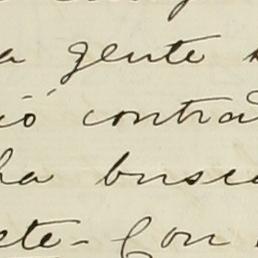 a gente
ió contra
ha busca
ete - Con